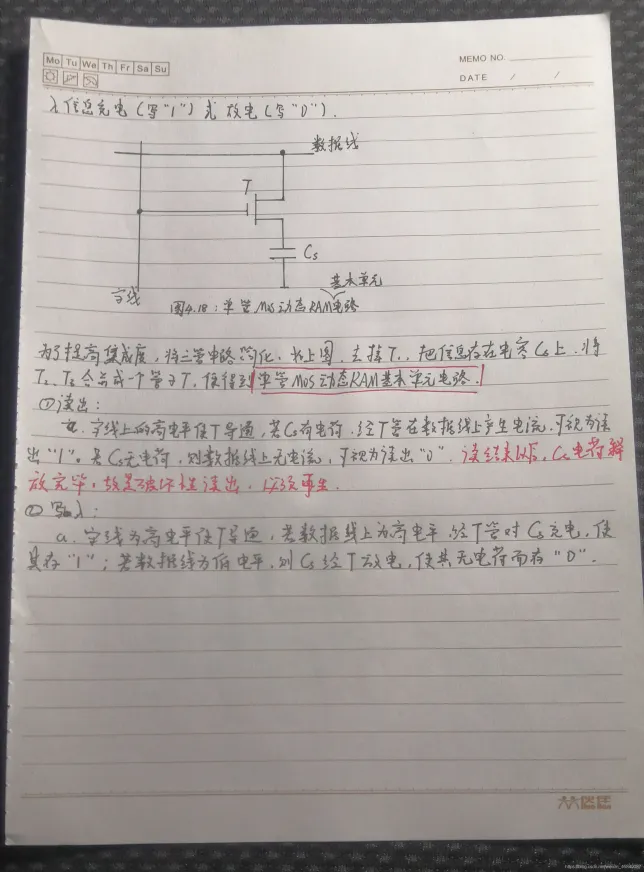 Mo Tu We Th Fr Sa Su
MEMO NO.
DATE / /
入信息充电(写"1")或放电(写"0").
数据线
T
Cs
字线
基本单元
图4.18:单管MOS动态RAM电路
为了提高集成度,将三管电路简化,如上图,去掉T..,把信息存在电容Cs上,将
T₂、T₃合并成一个管子T,便得到单管MOS动态RAM基本单元电路.
①读出:
a. 字线上的高电平使T导通,若Cs有电荷,经T管在数据线上产生电流,可视为读
出"1"。若Cs无电荷,则数据线上无电流,可视为读出"0".读结束以后,Cs电荷释
放完毕,故是破坏性读出,必须再生.
②写入:
a. 字线为高电平使T导通,若数据线上为高电平,经T管对Cs充电,使
其存"1";若数据线为低电平,则Cs经T放电,使其无电荷而存"0".